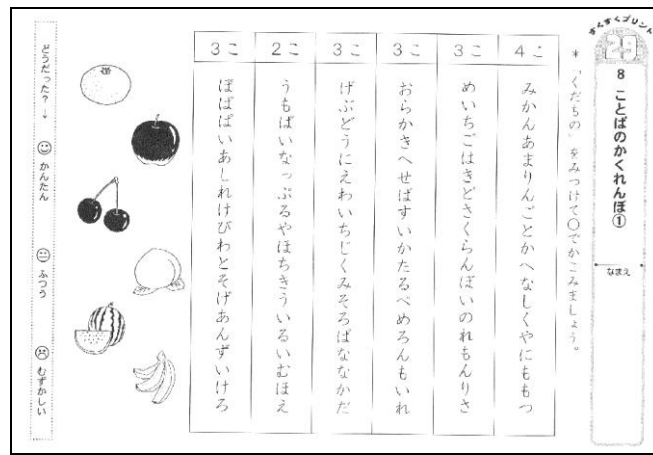 すくすくプリント
8 ことばのかくれんぼ①
なまえ
* 「くだもの」をみつけて○でかこみましょう。
4こ
みかんあまりんごとかへなしくやにももつ
3こ
めいちごはきどさくらんぼいのれもんりさ
3こ
おらかきへせばすいかたるべめろんもいれ
3こ
げぶどうにえわいちじくみそろばななかだ
2こ
うもばいなっぷるやほちきういるいむほえ
3こ
ぼばぱいあしれけびわとそげあんずいけろ
どうだった?→ かんたん ふつう むずかしい